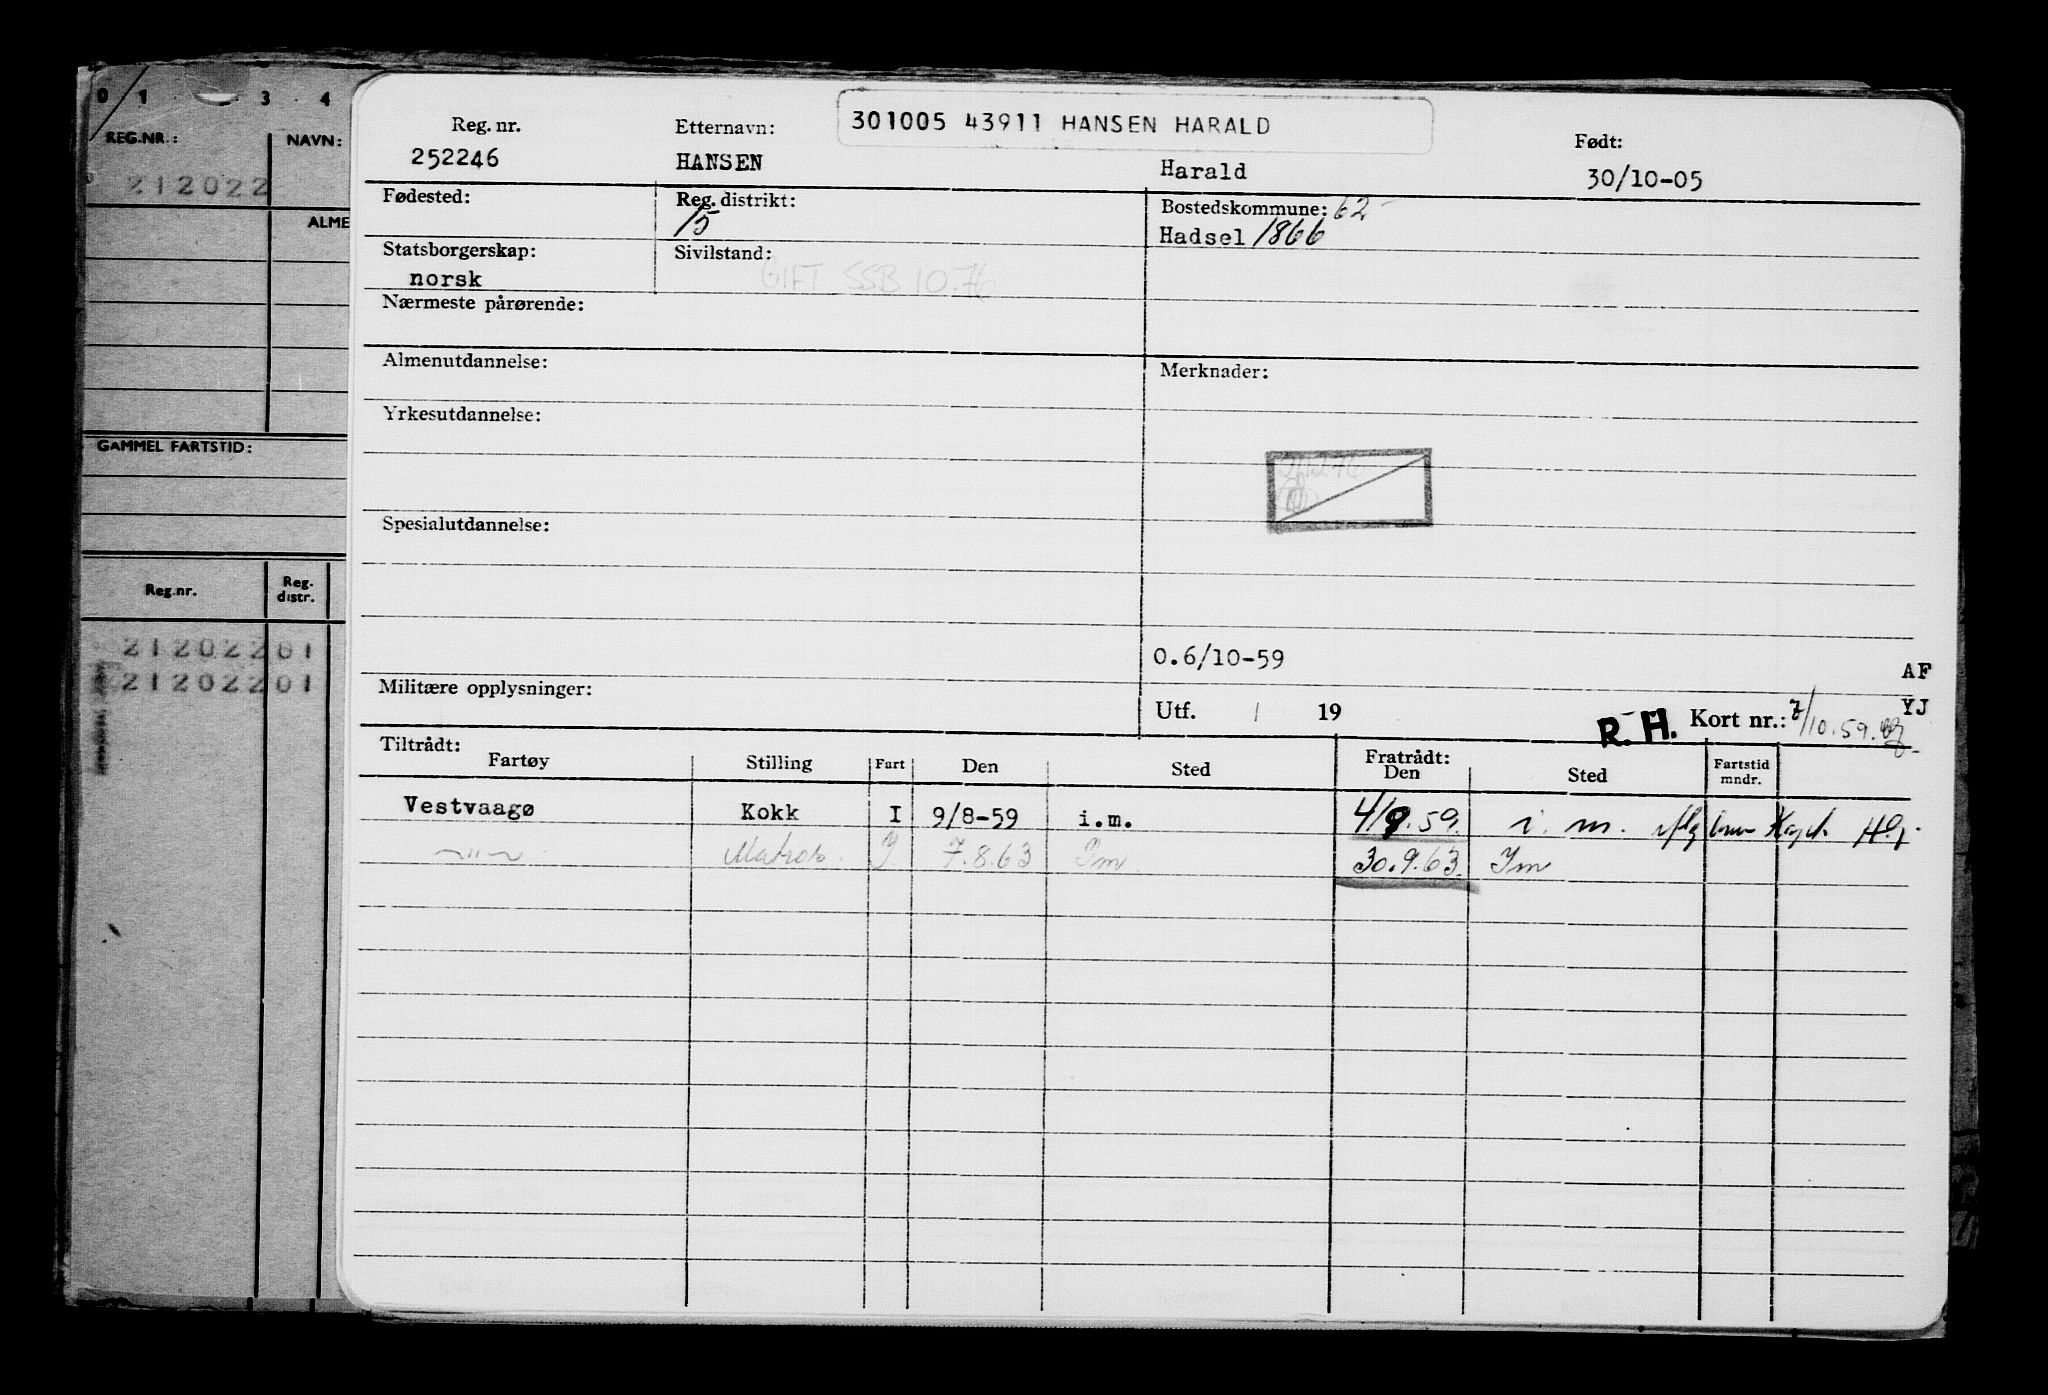 0 1 3 4
REG.NR.: NAVN:
212022
ALME
GAMMEL FARTSTID:
Reg.nr. Reg. distr.
212022 01
212022 01
301005 43911 HANSEN HARALD
Reg. nr. Etternavn: Født:
252246 HANSEN Harald 30/10-05
Fødested: Reg. distrikt: Bostedskommune: 62-
15 Hadsel 1866
Statsborgerskap: Sivilstand:
norsk GIFT SSB 10.76
Nærmeste pårørende:
Almenutdannelse: Merknader:
Yrkesutdannelse:
Spesialutdannelse:
0.6/10-59 AF
Militære opplysninger: Utf. / 19 R.H. Kort nr.: 7/10.59. YJ
Tiltrådt: Fratrådt:
Fartøy Stilling Fart Den Sted Den Sted Fartstid mndr.
Vestvaagø Kokk I 9/8-59 i.m. 4/9.59. i. m.
—"— Matros. I 7.8.63 Im 30.9.63. Im